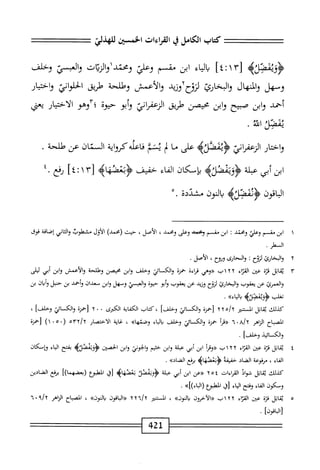 كتاب الكامل في القراءات الخمسين للهذليّ
﴿وَيُفَضِّلُ﴾ [٤:١٣] بالياء ابن مقسم وعليّ ومحمّد١ والزيّات والعبسيّ وخلف
وسهل والمنهال والبخاريّ لِرَوْحٍ٢ وزيد والأعمش وطلحة طريق الحلوانيّ واختيار
أحمد وابن صبيح وابن محيصن طريق الزعفرانيّ وأبو حيوة ٣؛ وهو الاختيار يعني
يُفَضِّلُ اللهُ .
واختار الزعفرانيّ ﴿يُفَضَّلُ﴾ على ما لم يُسَمَّ فاعلُه كرواية السمّان عن طلحة .
ابن أبي عبلة ﴿وَيَفْضُلُ﴾ بإسكان الفاء خفيف ﴿بَعْضُهَا﴾ [٤:١٣] رفع .٤
الباقون ﴿نُفَضِّلُ﴾ بالنون مشدّدة .٥
١ ابن مقسم وعليّ ومحمّد : ابن مقسم ومحمد وعلى ومحمد ، الأصل ، حيث (محمد) الأوّل مشطوب والثاني إضافة فوق
السطر .
٢ والبخاريّ لروح : والبخارى وروح ، الأصل .
٣ يُقابل قرّة عين القرّاء ١٢٢ب «وهي قراءة حمزة والكسائيّ وخلف وابن محيصن وطلحة والأعمش وابن أبي ليلى
والعمريّ عن يعقوب والبخاريّ لروح وزيد عن يعقوب وأبو حيوة والعبسيّ وسهل وابن سعدان وأحمد بن حنبل وأبان بن
تغلب ﴿وَيُفَضِّلُ﴾ بالياء» .
كذلك يُقابل المستنير ٢٢٥/٢ [حمزة والكسائيّ وخلف] ، كتاب الكفاية الكبرى ٢٠٠ [حمزة والكسائيّ وخلف] ،
المصباح الزاهر ٦٠٨/٢ «قرأ حمزة والكسائيّ وخلف بالياء وضمّها» ، غاية الاختصار ٥٣٢/٢ (١٠٥٠) [حمزة
والكسائيّ وخلف] .
٤ يُقابل قرّة عين القرّاء ١٢٢ب «وقرأ ابن أبي عبلة وابن خثيم والجونيّ وابن الحصين ﴿وَيَفْضُلُ﴾ بفتح الياء وإسكان
الفاء ، مرفوعة الضاد خفيفة ﴿بَعْضُهَا﴾ برفع الضاد» .
كذلك يُقابل شواذّ القراءات ٢٥٤ «عن ابن أبي عبلة ﴿وَيَفْضُلُ بَعْضُهَا﴾ [في المطبوع (بعضهما)] برفع الضادين
وسكون الفاء وفتح الياء [في المطبوع (الباء)]» .
٥ يُقابل قرّة عين القرّاء ١٢٢ب «الآخرون بالنون» ، المستنير ٢٢٦/٢ «الباقون بالنون» ، المصباح الزاهر ٦٠٩/٢
[الباقون] .
421